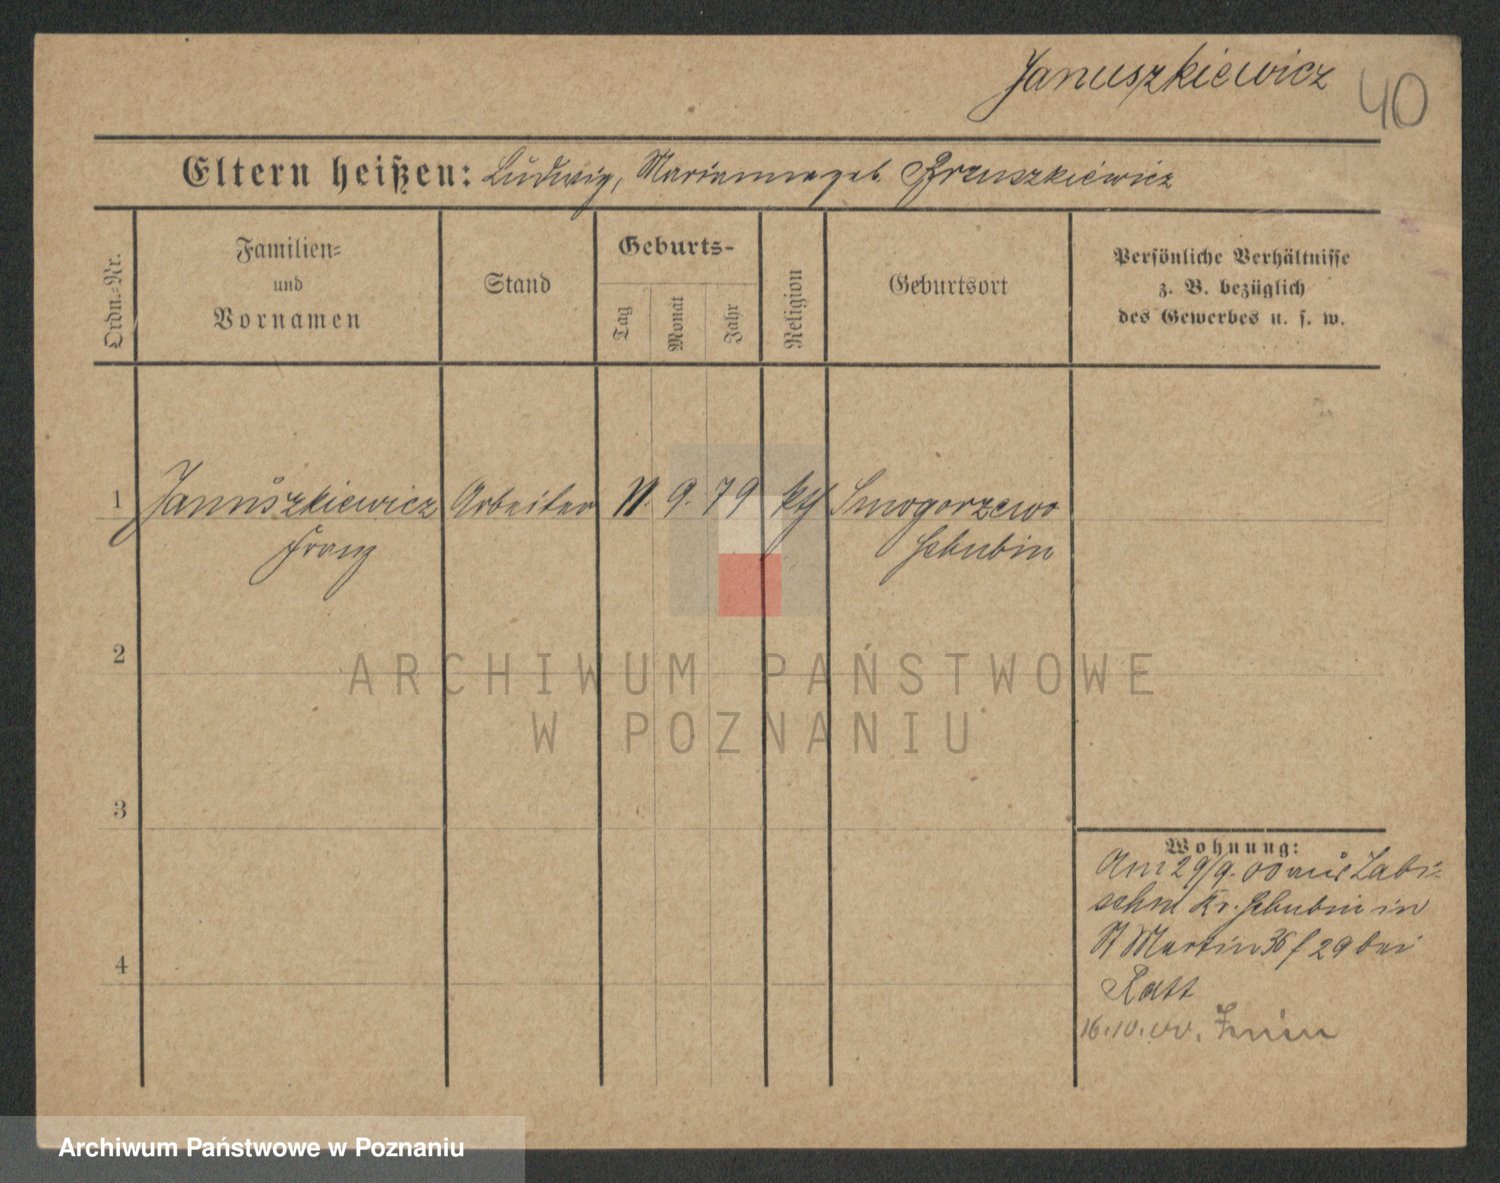 Januszkiewicz 40
Eltern heißen: Ludwig, Marianna geb. Brzuszkiewicz
Ordn.=Nr.
Familien=
und
Vornamen
Stand
Geburts-
Tag
Monat
Jahr
Religion
Geburtsort
Persönliche Verhältnisse
z. B. bezüglich
des Gewerbes u. s. w.
1 Januszkiewicz Arbeiter 11. 9. 79 kth Smogorzewo
Franz Schubin
2
ARCHIWUM PAŃSTWOWE
W POZNANIU
3
Wohnung:
Am 29/9. 00 aus Labi-
schin Kr. Schubin in
St Martin 36 f 29 bei
Ratt
4
16.10.00. Znin
Archiwum Państwowe w Poznaniu